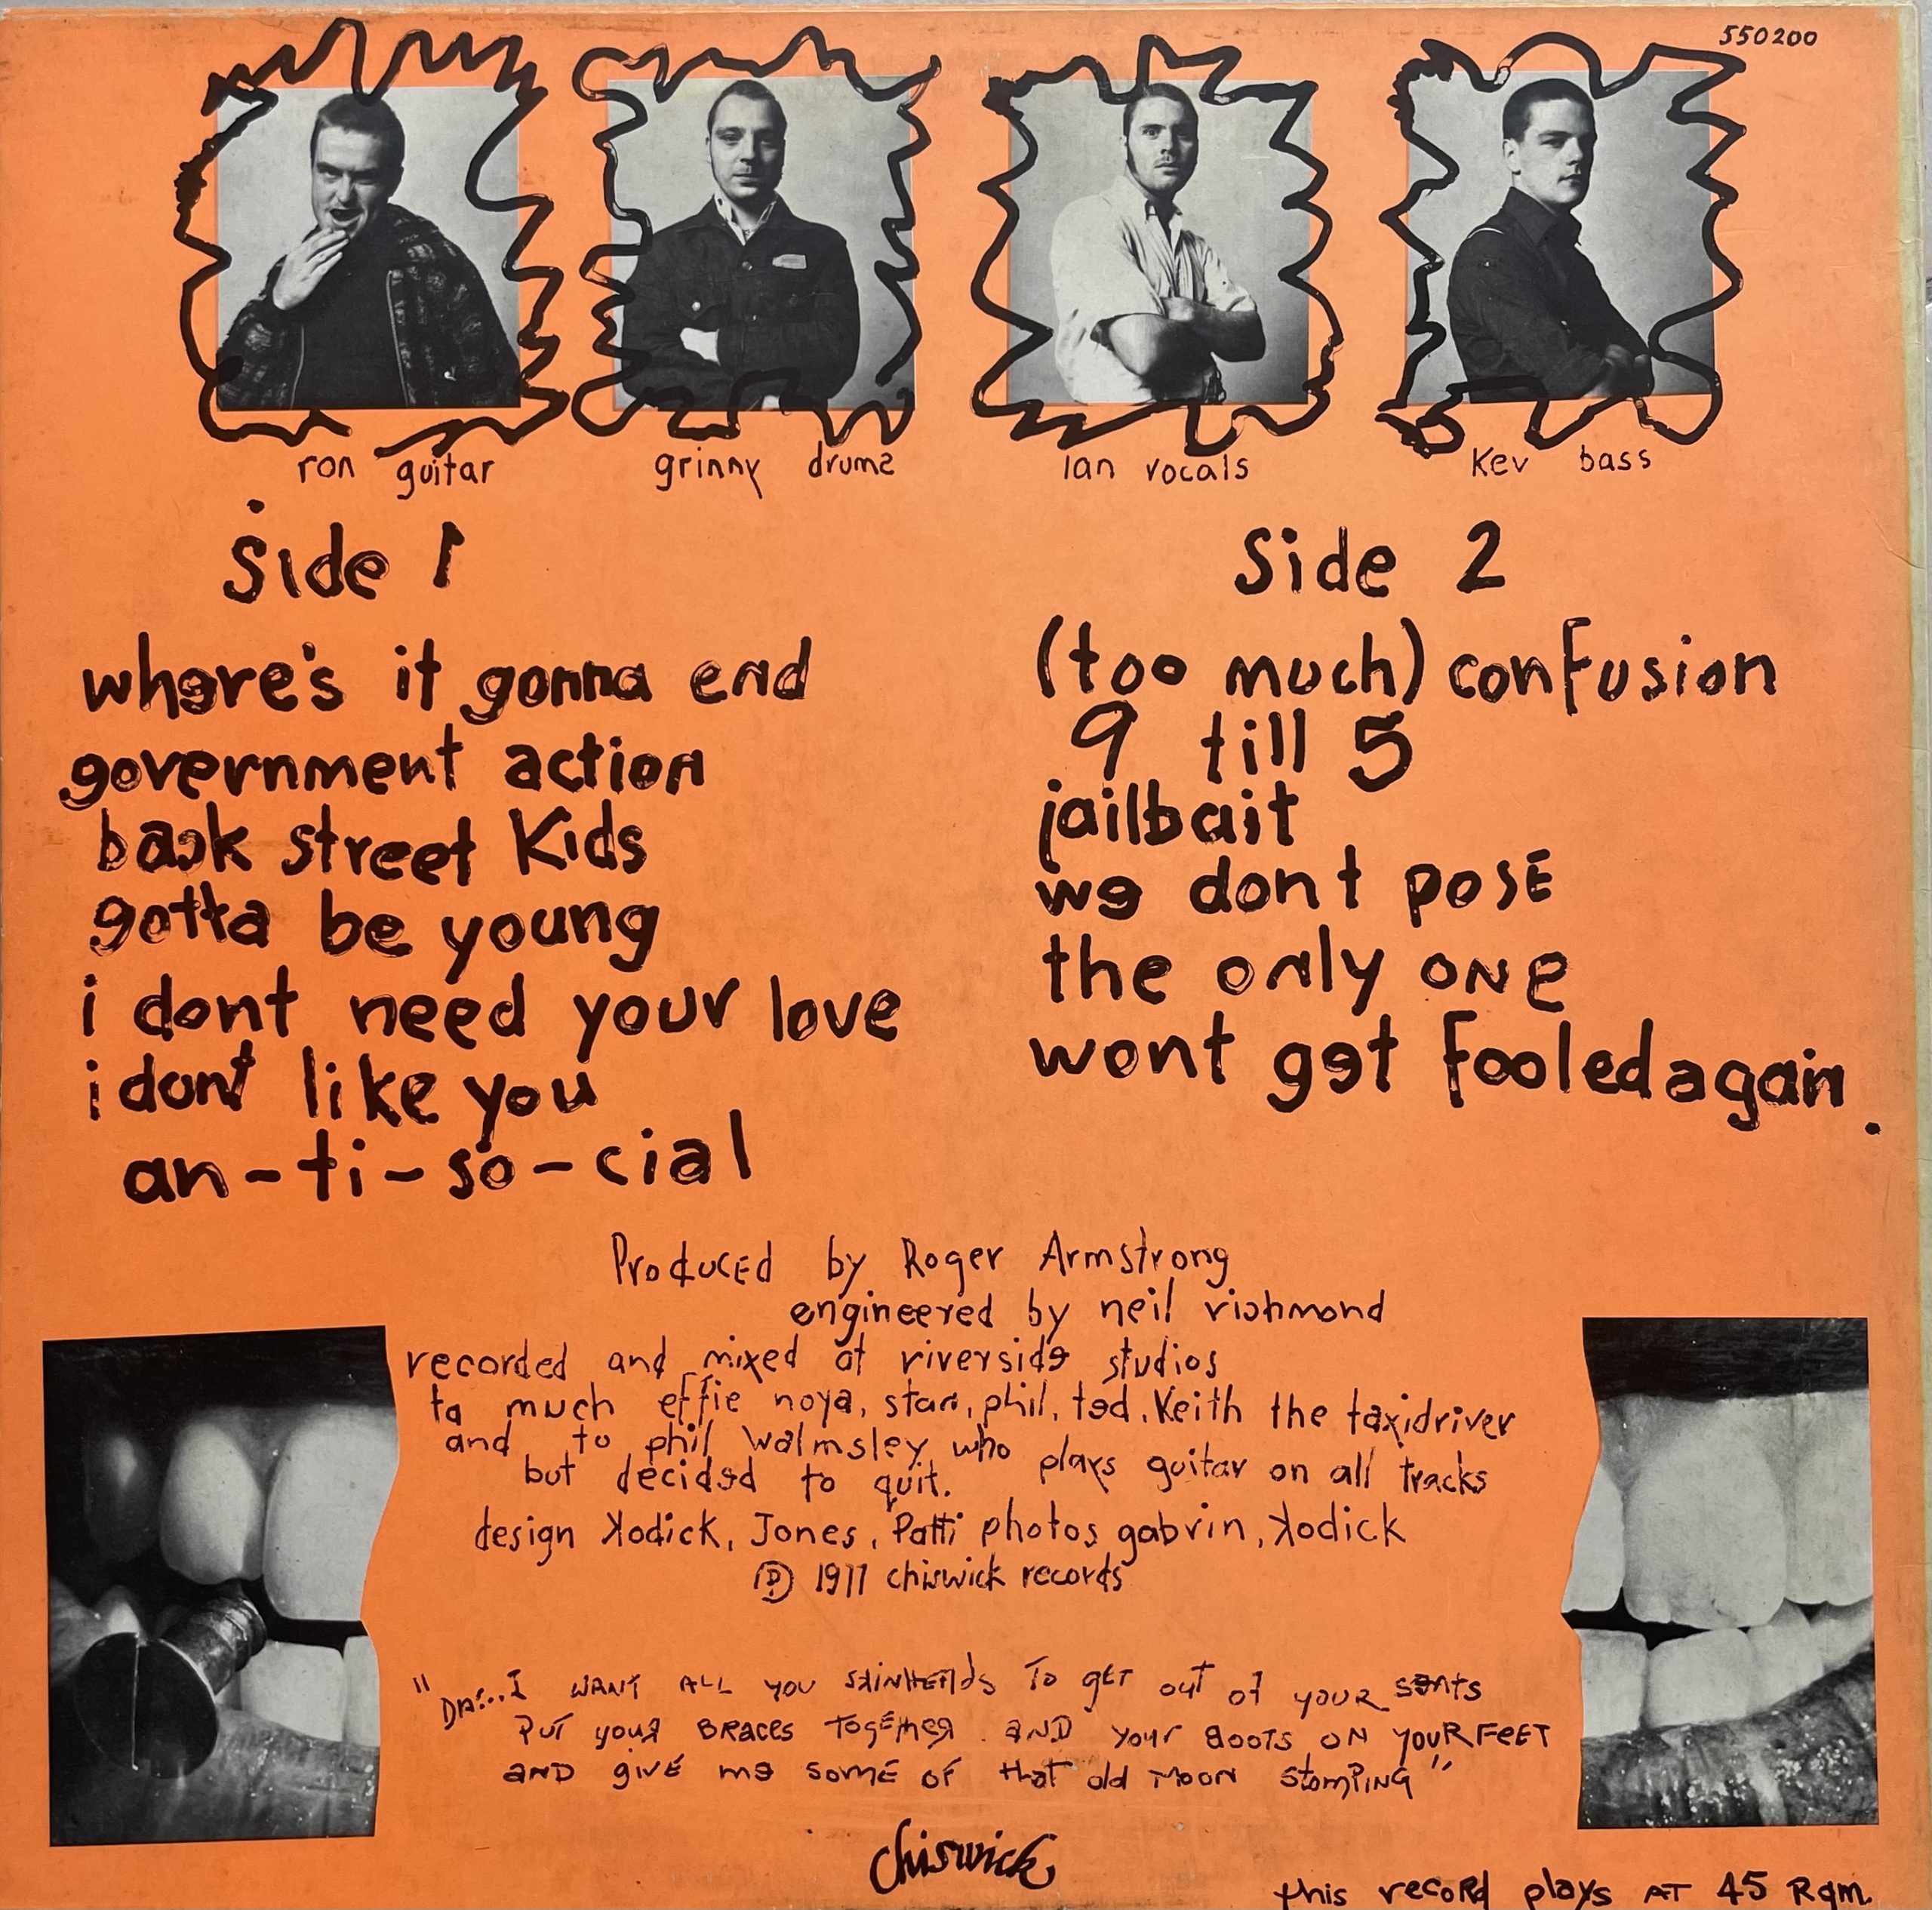 550200
ron guitar
grinny drums
Ian vocals
Kev bass
side 1
where's it gonna end
government action
back street Kids
gotta be young
i dont need your love
i dont like you
an-ti-so-cial
Side 2
(too much) confusion
9 till 5
jailbait
we dont pose
the only one
wont get fooled again.
Produced by Roger Armstrong
engineered by neil richmond
recorded and mixed at riverside studios
ta much effie noya, stan, phil, ted, Keith the taxidriver
and to phil walmsley who plays guitar on all tracks
but decided to quit.
design Kodick, Jones, Patti photos gabrin, Kodick
℗ 1977 chiswick records
"DA!..I WANT ALL YOU SKINHEADS To GET out of YOUR seats
PUT YOUR BRACES TOGETHER AND YOUR BOOTS ON YOUR FEET
AND GIVE me SOME OF that old MOON StomPING"
chiswick
this record plays AT 45 Rpm.